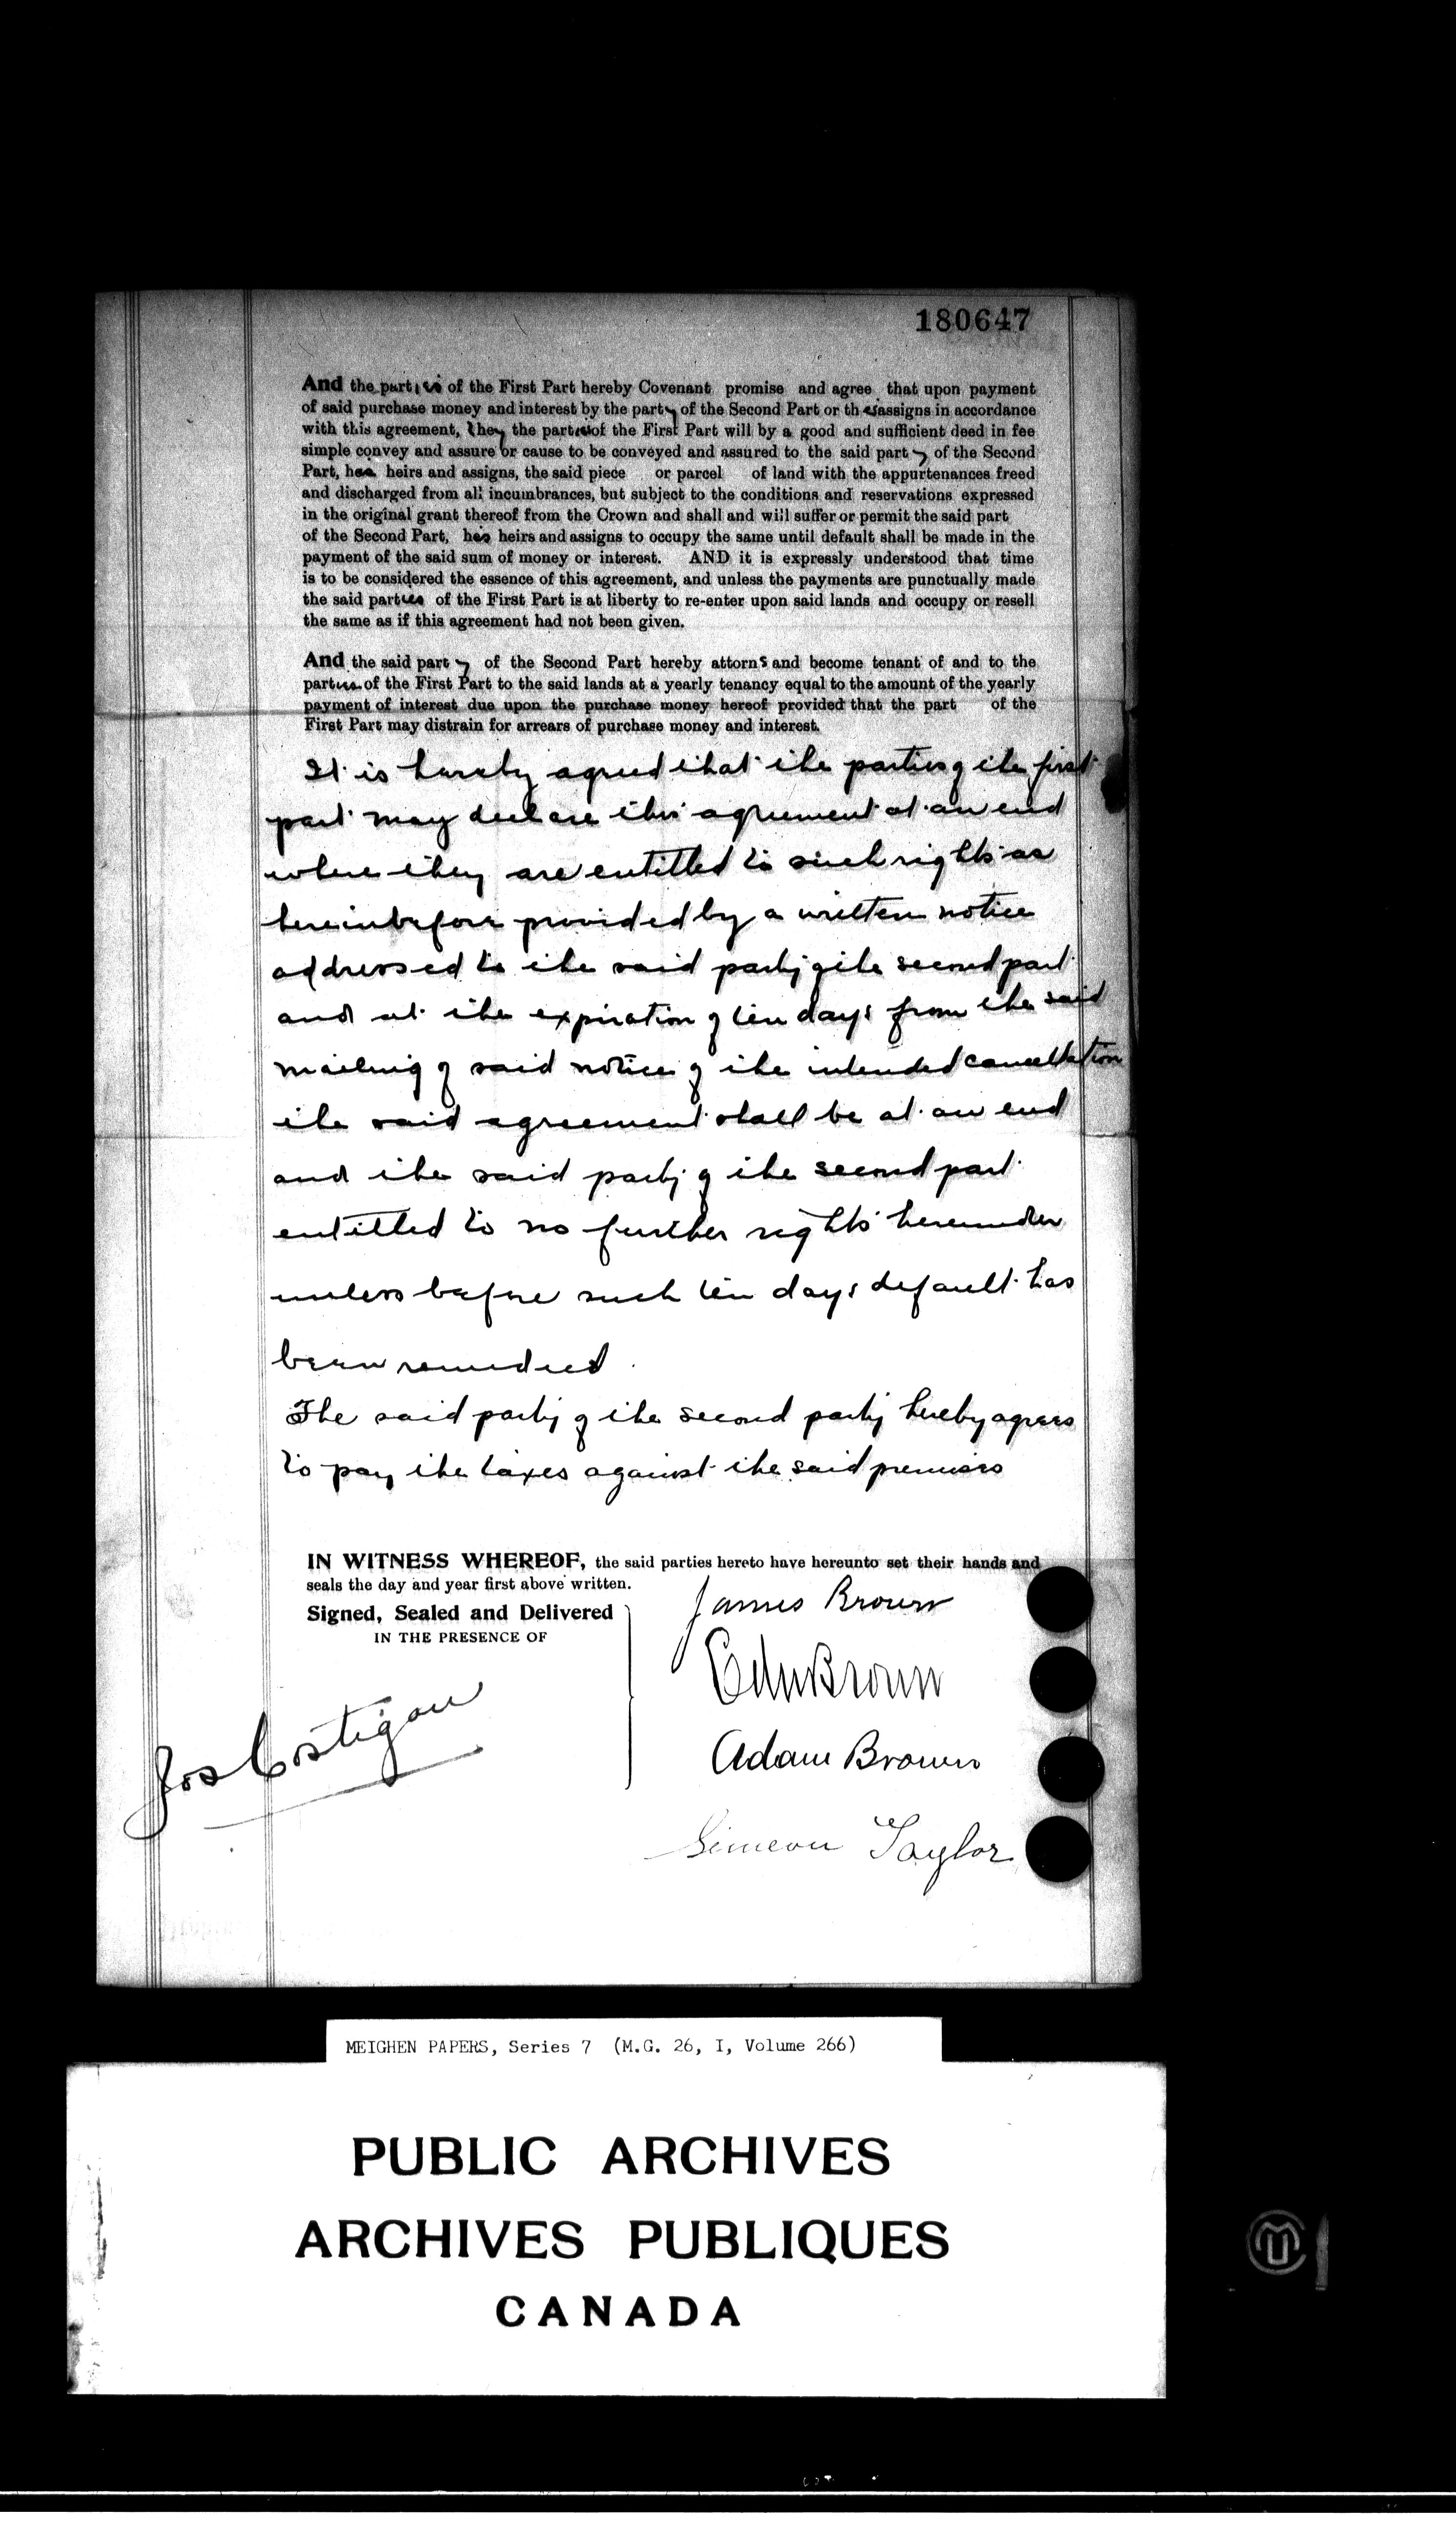 180647
And the parties of the First Part hereby Covenant promise and agree that upon payment
of said purchase money and interest by the party of the Second Part or their assigns in accordance
with this agreement, they the parties of the First Part will by a good and sufficient deed in fee
simple convey and assure or cause to be conveyed and assured to the said party of the Second
Part, his heirs and assigns, the said piece or parcel of land with the appurtenances freed
and discharged from all incumbrances, but subject to the conditions and reservations expressed
in the original grant thereof from the Crown and shall and will suffer or permit the said part
of the Second Part, his heirs and assigns to occupy the same until default shall be made in the
payment of the said sum of money or interest. AND it is expressly understood that time
is to be considered the essence of this agreement, and unless the payments are punctually made
the said parties of the First Part is at liberty to re-enter upon said lands and occupy or resell
the same as if this agreement had not been given.
And the said party of the Second Part hereby attorns and become tenant of and to the
parties of the First Part to the said lands at a yearly tenancy equal to the amount of the yearly
payment of interest due upon the purchase money hereof provided that the part of the
First Part may distrain for arrears of purchase money and interest.
It is hereby agreed that the parties of the first
part may declare this agreement at an end
where they are entitled to such rights as
hereinbefore provided by a written notice
addressed to the said party of the second part
and at the expiration of ten days from the said
mailing of said notice of the intended cancellation
the said agreement shall be at an end
and the said party of the second part
entitled to no further rights hereunder
unless before such ten days default has
been remedied.
The said party of the second party hereby agrees
to pay the taxes against the said premises
IN WITNESS WHEREOF, the said parties hereto have hereunto set their hands and
seals the day and year first above written.
Signed, Sealed and Delivered
IN THE PRESENCE OF
James Brown
Edw Brown
Adam Brown
Jos Costigan
Simeon Taylor
MEIGHEN PAPERS, Series 7 (M.G. 26, I, Volume 266)
PUBLIC ARCHIVES
ARCHIVES PUBLIQUES
CANADA